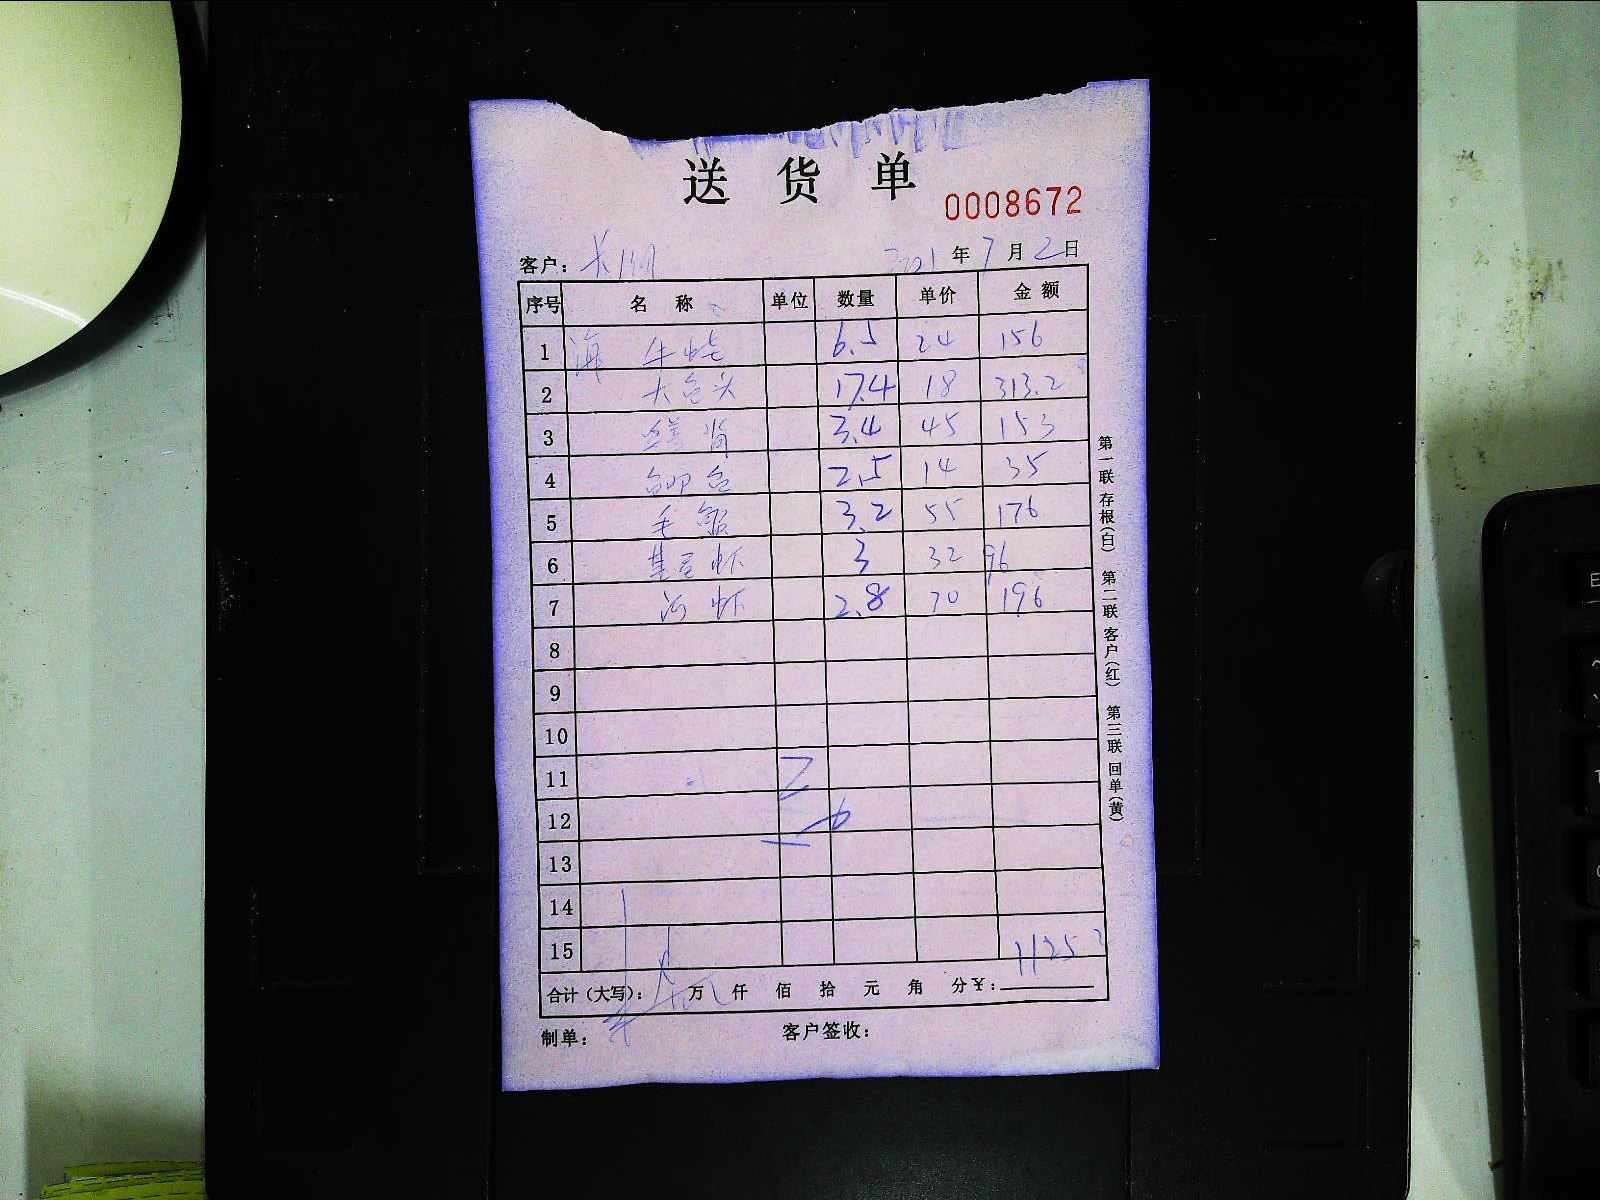 送 货 单
0008672
客户： 2021 年 7 月 2 日
序号 名 称 单位 数量 单价 金 额
1 海 牛蛙 6.5 24 156
2 大鱼头 17.4 18 313.2
3 3.4 45 153
4 鲫鱼 2.5 14 35
5 毛蟹 3.2 55 176
6 基围虾 3 32 96
7 河虾 2.8 70 196
8
9
10
11
12
13
14
15 1125 2
合计（大写）： 万 仟 佰 拾 元 角 分￥：
制单： 客户签收：
第一联 存根（白） 第二联 客户（红） 第三联 回单（黄）